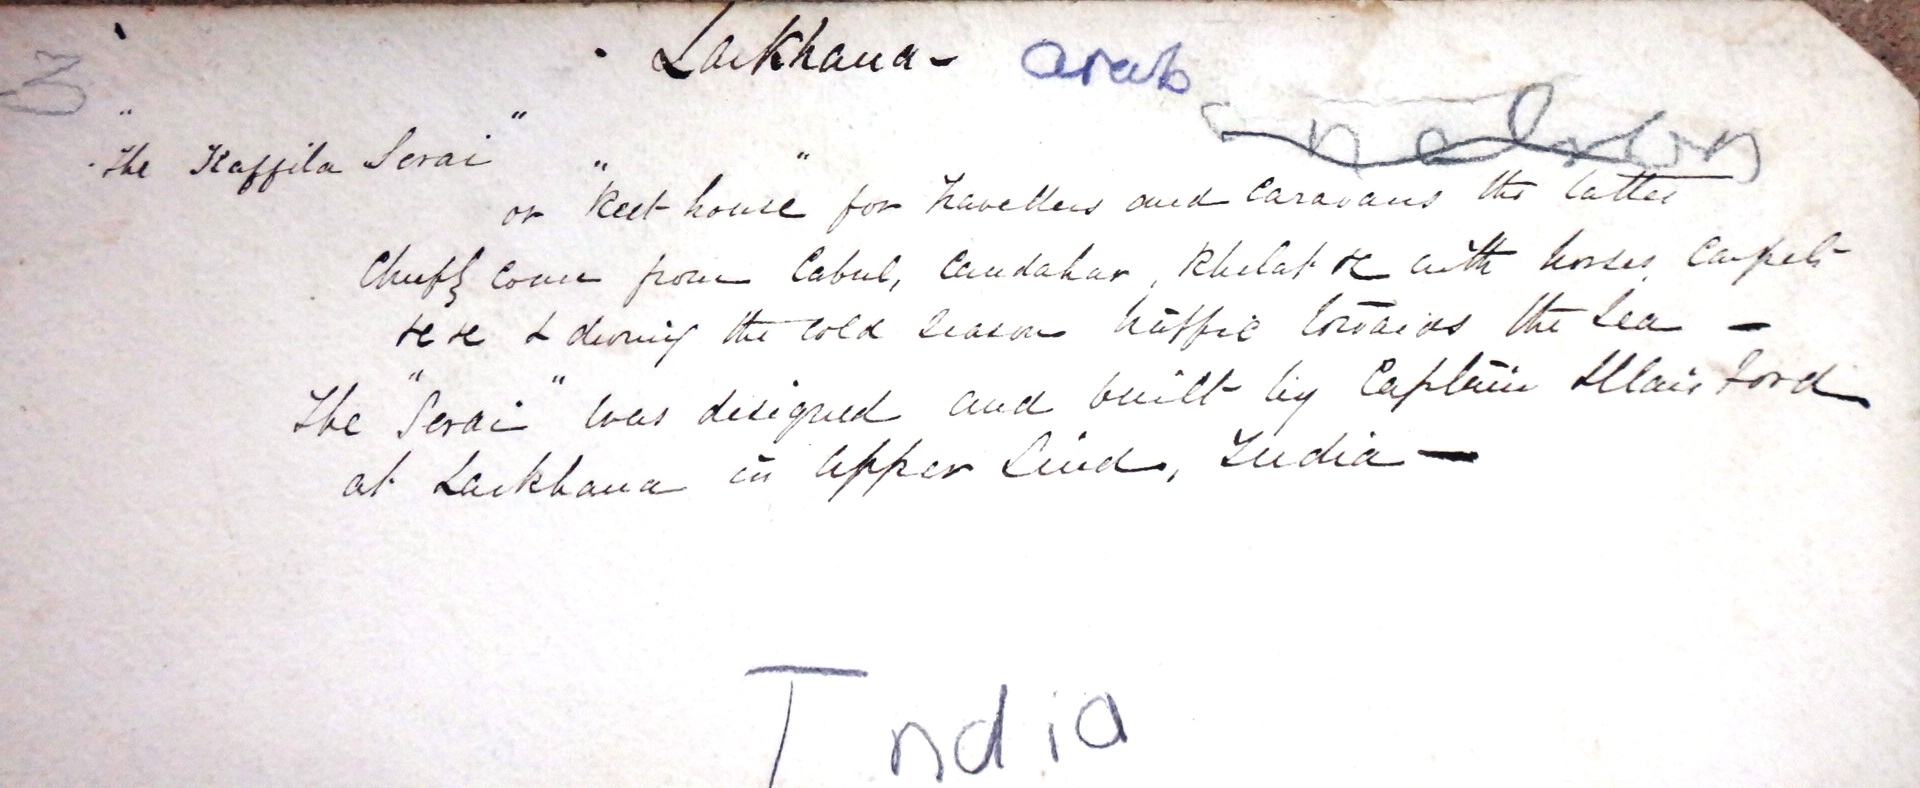 Larkhana - arab
"The Kaffila Serai"
or "Rest house" for Travellers and Caravans the latter
Chiefly come from Cabul, Candahar, Khelat &c with horses, Carpets
&c &c & during the cold season traffic towards the Sea -
The "Serai" was designed and built by Captain Ford
at Larkhana in Upper Sind, India -
India